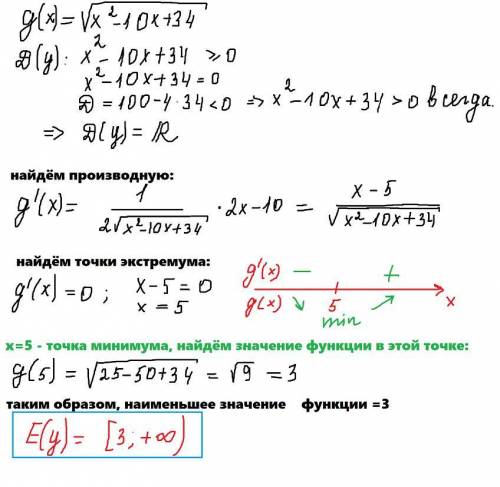 g(x)=√x²-10x+34
D(y): x²-10x+34 ≥0
x²-10x+34=0
D=100-4·34<0 ⇒ x²-10x+34>0 всегда.
⇒ D(y)=ℝ
найдём производную:
g'(x)= 1/(2√x²-10x+34) · 2x-10 = (x-5)/(√x²-10x+34)
найдём точки экстремума:
g'(x)=0 ; x-5=0
x=5
g'(x) − +
g(x) ↘ 5 ↗ x
min
x=5 - точка минимума, найдём значение функции в этой точке:
g(5) = √25-50+34 = √9 =3
таким образом, наименьшее значение функции =3
E(y)= [3;+∞)